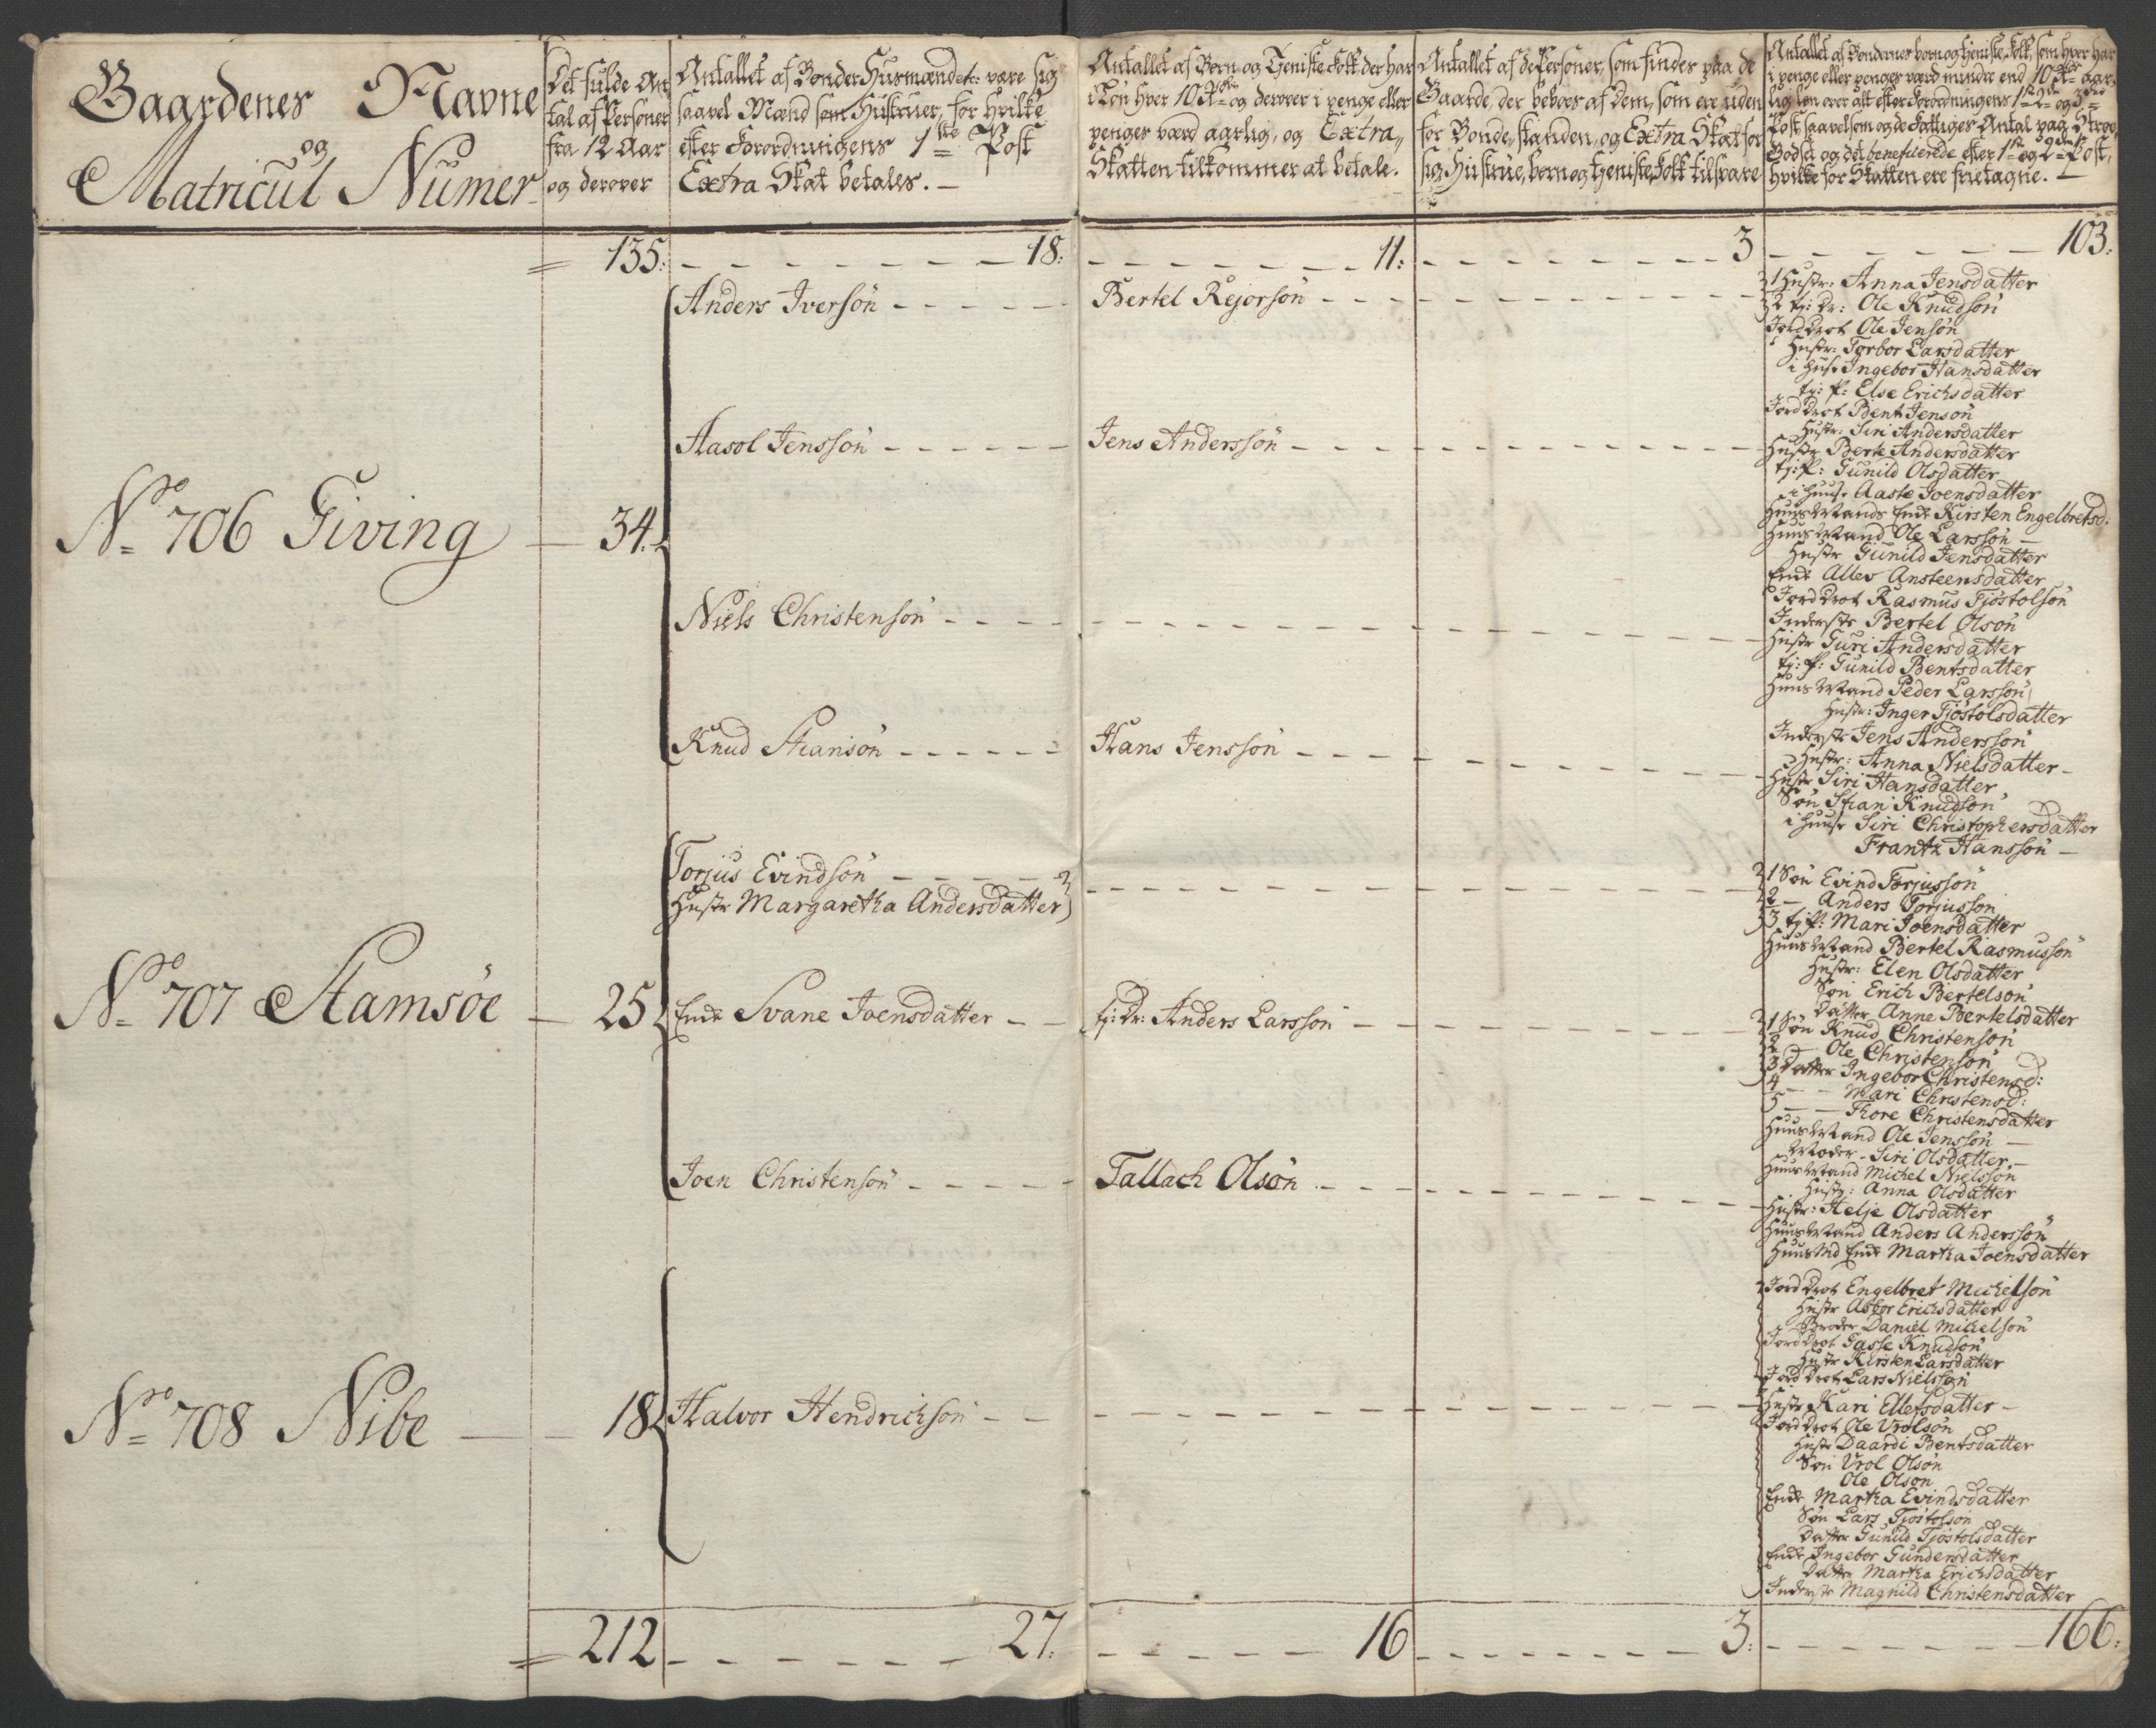 Gaardenes Navne
og
Matricul Numer
Det fulde An
tal af Personer
fra 12 Aar
og derover
Antallet af Bonder Husmænd etc: være sig
saavel Mænd som Hustruer, for hvilke
efter Forordningens 1ste Post
Extra Skat betales. —
Antallet af Børn og Tieniste Folk der har
i Løn hver 10 Rdlr og derover i penge eller
penges værd aarlig, og Extra
Skatten tilkommer at betale.
Antallet af de Personer, som findes paa de
Gaarde, der beboes af Dem, som ere uden
for Bonde, standen, og Extra Skat for
sig, Hustrue, børn og tieniste Folk tilsvare
Antallet af Bondernes børn og tieniste Folk, som hver har
i penge eller penges værd mindre end 10 Rdlr aar,
lig løn over alt efter Forordningens 1ste 2den og 3die
Post saavelsom og de Fattiges Antal paa Strøe
Godset og det beneficerede efter 1ste og 2den Post,
hvilke for Skatten ere frietagne. —
135. 18: 11: 3 103:
No 706 Giving — 34.
Anders Iversøn
Bertel Rejorsøn
1 Hustr: Anna Jensdatter
2 tj: Dr: Ole Knudsøn
Jorddrot Ole Jensøn
Hustr: Torbor Larsdatter
i Huse Ingebor Hansdatter
tj: P: Else Erichsdatter
Jorddrot Bent Jensøn
Hustr: Siri Andersdatter
Aasol Jenssøn
Jens Anderssøn
Hustr Berte Andersdatter
tj: P: Gunild Olsdatter
i Huuse Aaste Joensdatter
Huus Mands Enke Kirsten Engelbretsd:
Huus Mand Ole Larssøn —
Hustr Gunild Jensdatter
Enke Allev Ansteensdatter
Jorddrot Rasmus Tjøstolsøn
Inderste Bertel Olsøn
Niels Christensøn
Hustr Guri Andersdatter
tj: P: Gunild Bentsdatter
Huus Mand Peder Larssøn
Hustr: Inger Tjøstolsdatter
Inderste Jens Anderssøn
Hustr: Anna Nielsdatter —
Knud Stiansøn
Hans Jenssøn
Hustr Siri Hansdatter
Søn Stian Knudsøn
i Huuse Siri Christophersdatter
Frantz Hanssøn —
No 707 Hamsøe — 25
Torjus Evindsøn
Hustr Margaretha Andersdatter
1 Søn Evind Torjussøn
2 — Anders Torjussøn
3 tj: P: Mari Joensdatter
Huus Mand Bertel Rasmussøn
Hustr: Elen Olsdatter
Søn Erich Bertelsøn
Datter Anne Bertelsdatter
Enke Svane Joensdatter
tj: Dr: Anders Larssøn
1 Søn Knud Christensøn
2 — Ole Christensøn
3 Datter Ingebor Christensd:
4 — Mari Christensd:
5 — Tore Christensdatter
Huus Mand Ole Jenssøn —
Moder — Siri Olsdatter —
Huus Mand Michel Nielssøn
Hustr: Anna Olsdatter
Joen Christensøn
Tallach Olsøn
Hustr: Helje Olsdatter
Huus Mand Anders Anderssøn
Huus Md Enke Martha Joensdatter
No 708 Nibe — 18
Jorddrot Engelbret Michelsøn
Hustr Asbor Erichsdatter
Broder Daniel Michelsøn
Jorddrot Tasse Knudsøn
Hustr Kirsten Larsdatter
Jorddrot Lars Nielssøn
Halvor Hendrichsøn
Hustr Kari Ellefsdatter —
Jorddrot Ole Vrolsøn
Hustr Daardi Bentsdatter
Søn Vrol Olsøn
Ole Olsøn
Enke Martha Evindsdatter
Søn Lars Tjøstolsøn
Datter Gunild Tjøstolsdatter
Enke Ingebor Gundersdatter
Datter Martha Erichsdatter
Inderste Magnild Christensdatter
212 27. 16 3. 166.